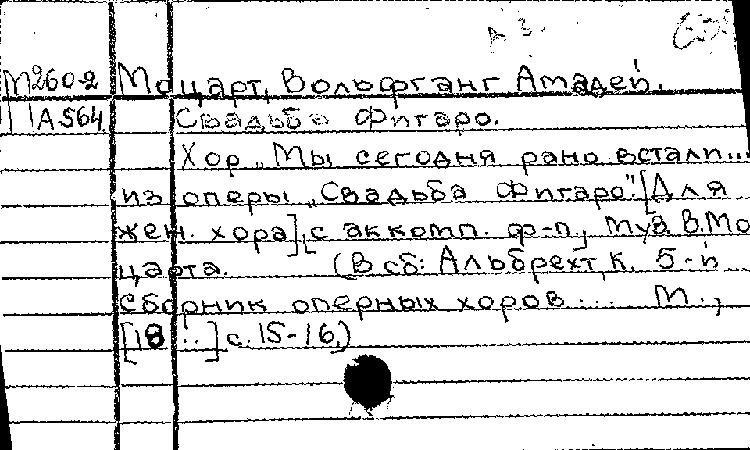 М260-2 Моцарт, Вольфганг Амадей.
А564 Свадьба Фигаро.
Хор „Мы сегодня рано встали...
из оперы „Свадьба Фигаро". [Для
жен. хора], [с аккомп. ф-п., муз. В. Мо
царта. (В сб: Альбрехт, К. 5-й
сборник оперных хоров ... М.,
[18 ..] с. 15-16.)